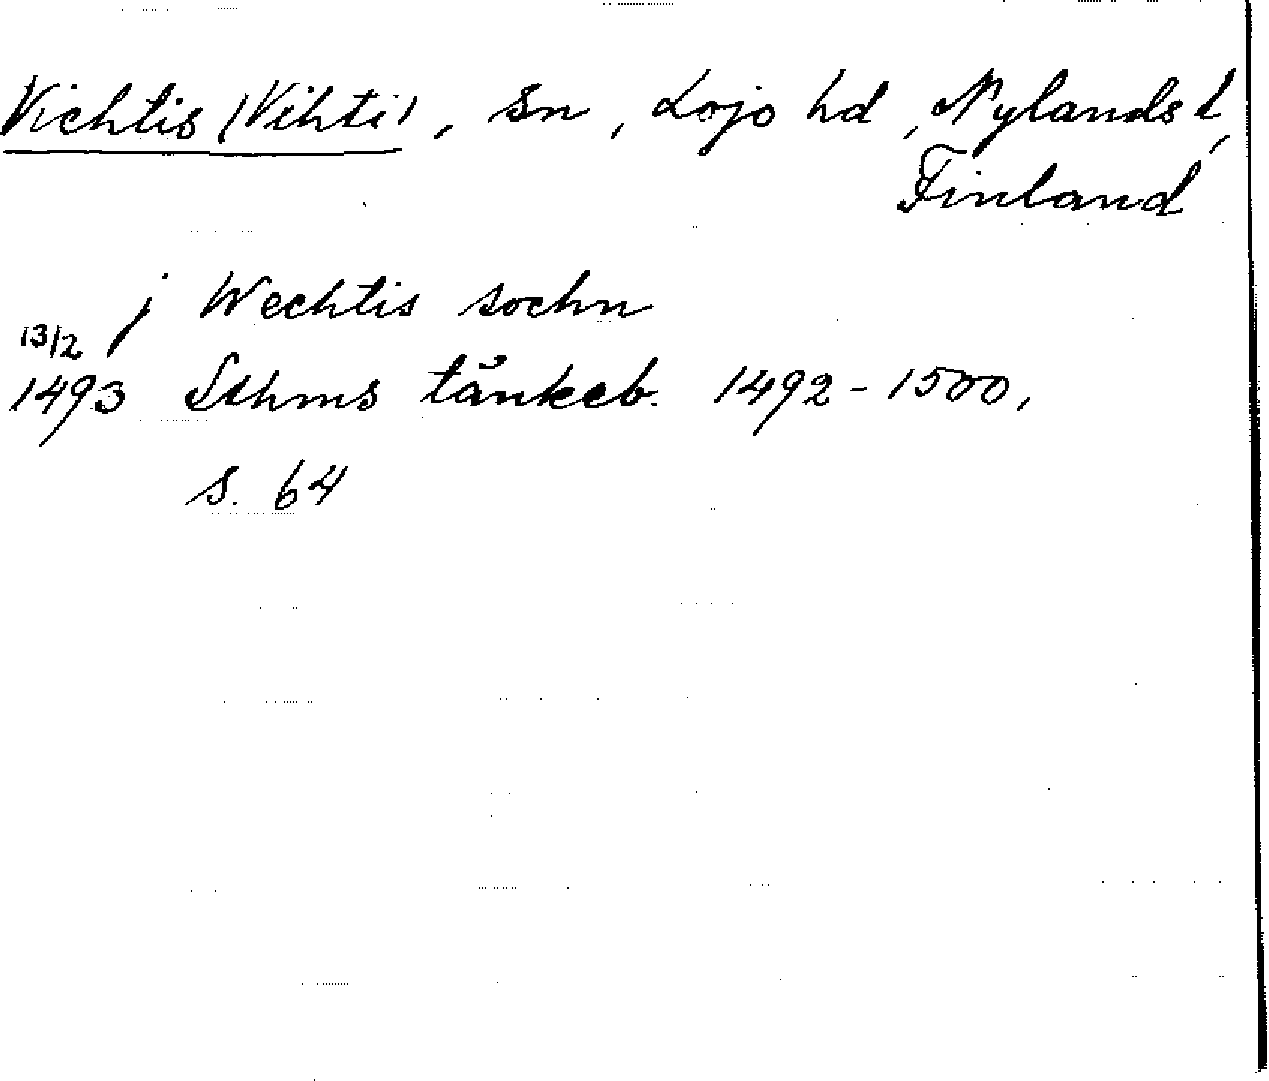 Vichtis (Vihti), sn, Lojo hd, Nylands l,
Finland
j Wechtis sochn
13/2
1493 Sthms tänkeb. 1492-1500,
s. 64